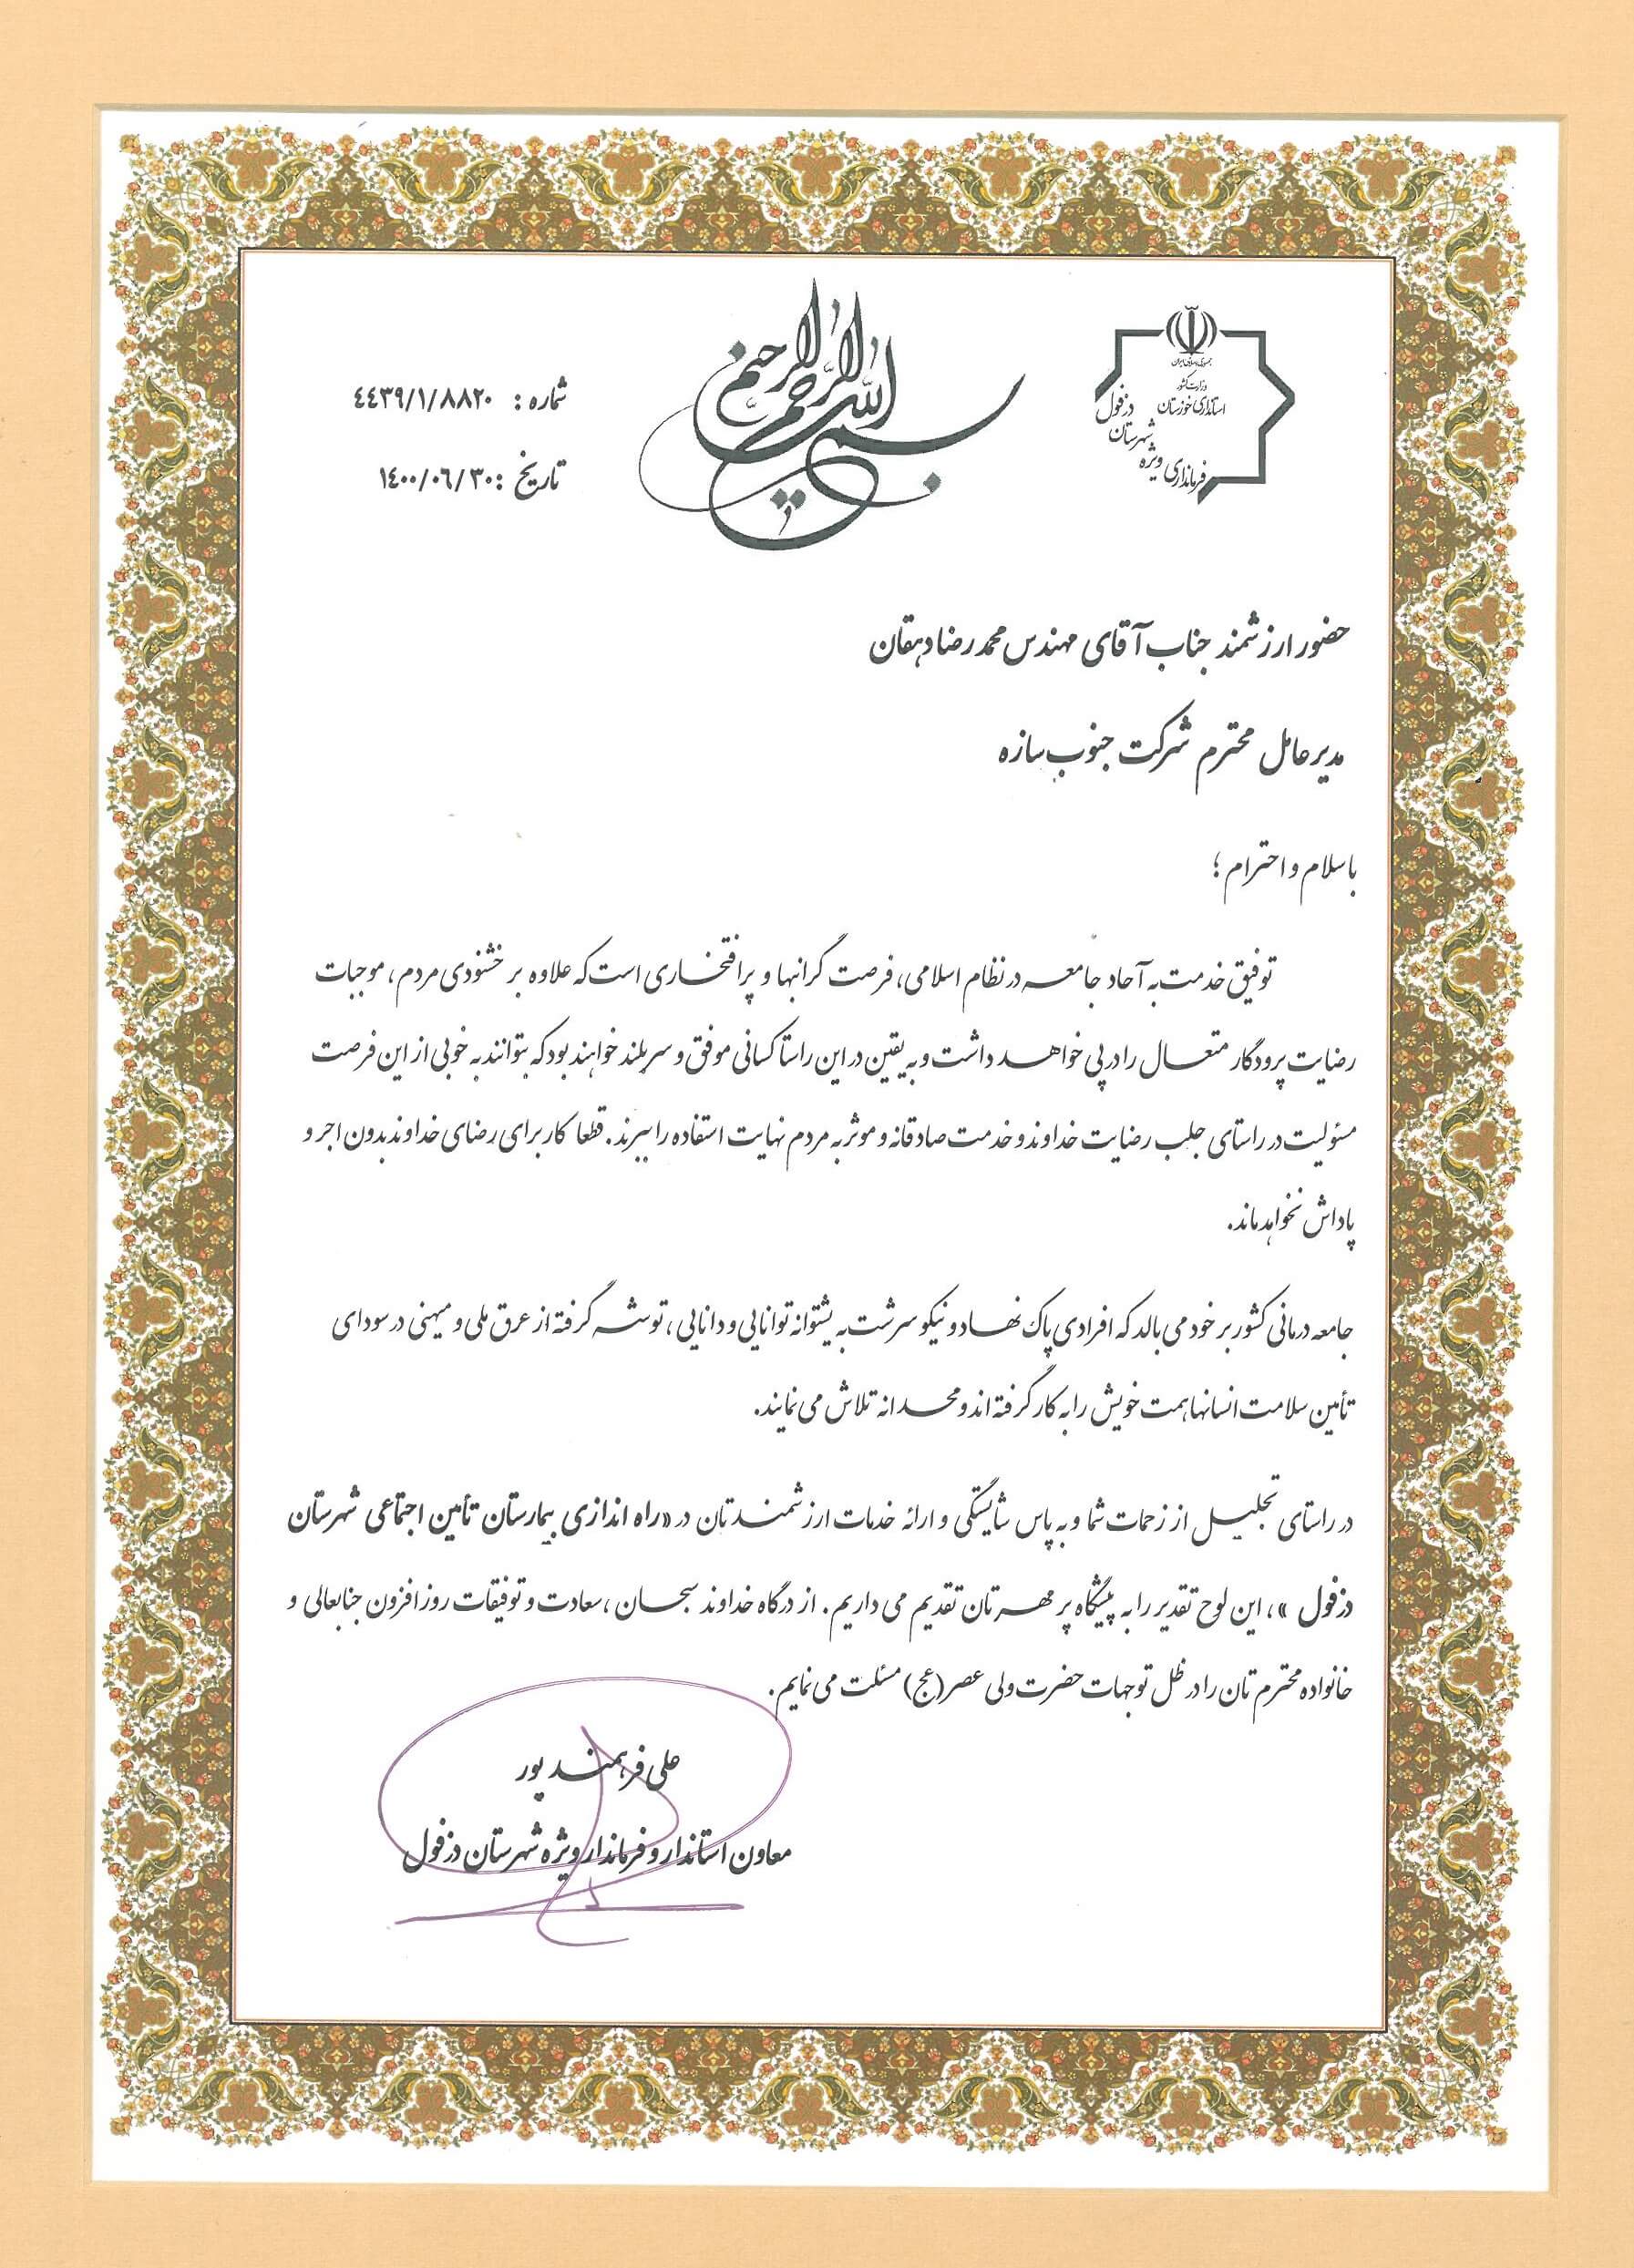 بسم الله الرحمن الرحیم
جمهوری اسلامی ایران
وزارت کشور
استانداری خوزستان
فرمانداری ویژه شهرستان دزفول
شماره : ٤٤٣٩/١/٨٨٢٠
تاریخ : ١٤٠٠/٠٦/٣٠
حضور ارزشمند جناب آقای مهندس محمد رضا دهقان
مدیر عامل محترم شرکت جنوب سازه
با سلام و احترام ؛
توفیق خدمت به آحاد جامعه در نظام اسلامی، فرصت گرانبها و پرافتخاری است که علاوه بر خشنودی مردم ، موجبات
رضایت پرودگار متعال را در پی خواهد داشت و به یقین در این راستا کسانی موفق و سربلند خواهند بود که بتوانند به خوبی از این فرصت
مسئولیت در راستای جلب رضایت خداوند و خدمت صادقانه و موثر به مردم نهایت استفاده را ببرند. قطعا کار برای رضای خداوند بدون اجر و
پاداش نخواهد ماند.
جامعه درمانی کشور بر خود می بالد که افرادی پاک نهاد و نیکو سرشت به پشتوانه توانایی و دانایی ، توشه گرفته از عرق ملی و میهنی در سودای
تأمین سلامت انسانها همت خویش را به کار گرفته اند و مجدانه تلاش می نمایند.
در راستای تجلیل از زحمات شما و به پاس شایستگی و ارائه خدمات ارزشمندتان در «راه اندازی بیمارستان تأمین اجتماعی شهرستان
دزفول » ، این لوح تقدیر را به پیشگاه پر مهرتان تقدیم می داریم. از درگاه خداوند سبحان ، سعادت و توفیقات روز افزون جنابعالی و
خانواده محترم تان را در ظل توجهات حضرت ولی عصر (عج) مسئلت می نمایم.
علی فرهمند پور
معاون استاندار و فرماندار ویژه شهرستان دزفول